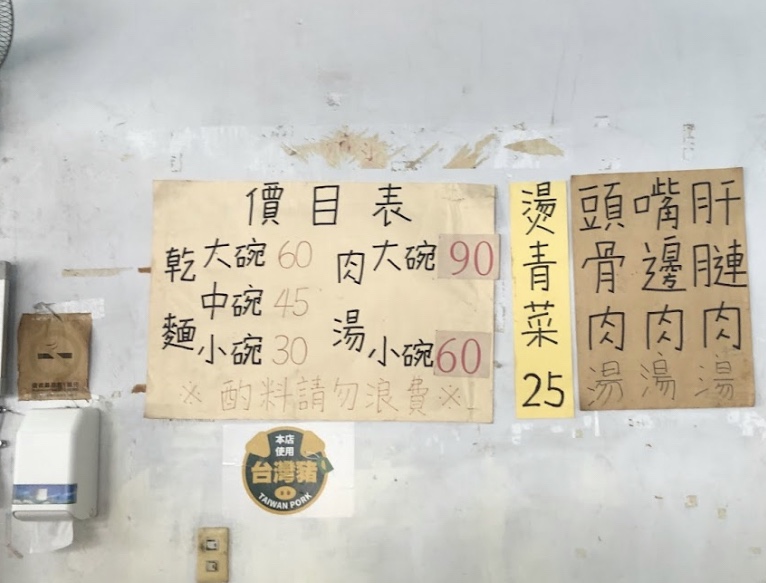 價目表
乾麵
大碗 60
中碗 45
小碗 30
肉湯
大碗 90
小碗 60
※ 酌料請勿浪費 ※
燙青菜 25
肝腱肉湯
嘴邊肉湯
頭骨肉湯
本店
使用
台灣豬
TAIWAN PORK